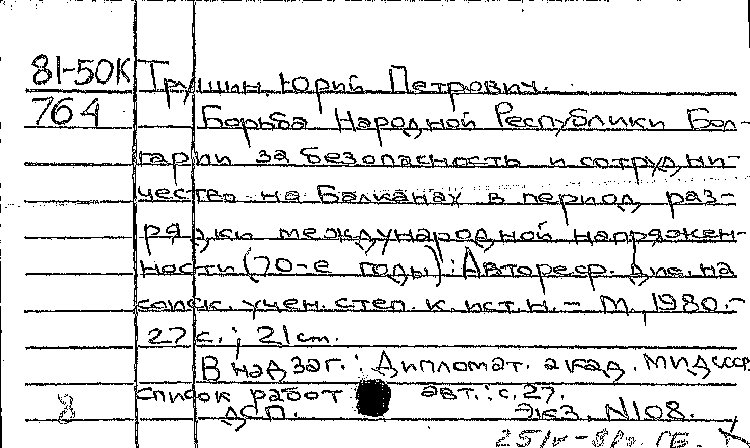 81-50К Трушин, Юрий Петрович.
764 Борьба Народной Республики Бол-
гарии за безопасность и сотрудни-
чество на Балканах в период раз-
рядки международной напряжен-
ности (70-е годы): Автореф. дис. на
соиск. учен. степ. к. ист. н. - М, 1980.-
27 с.; 21 cm.
В надзаг.: Дипломат. акад. МИД СССР
Список работ авт.: с. 27.
8 ДСП. Экз. N108.